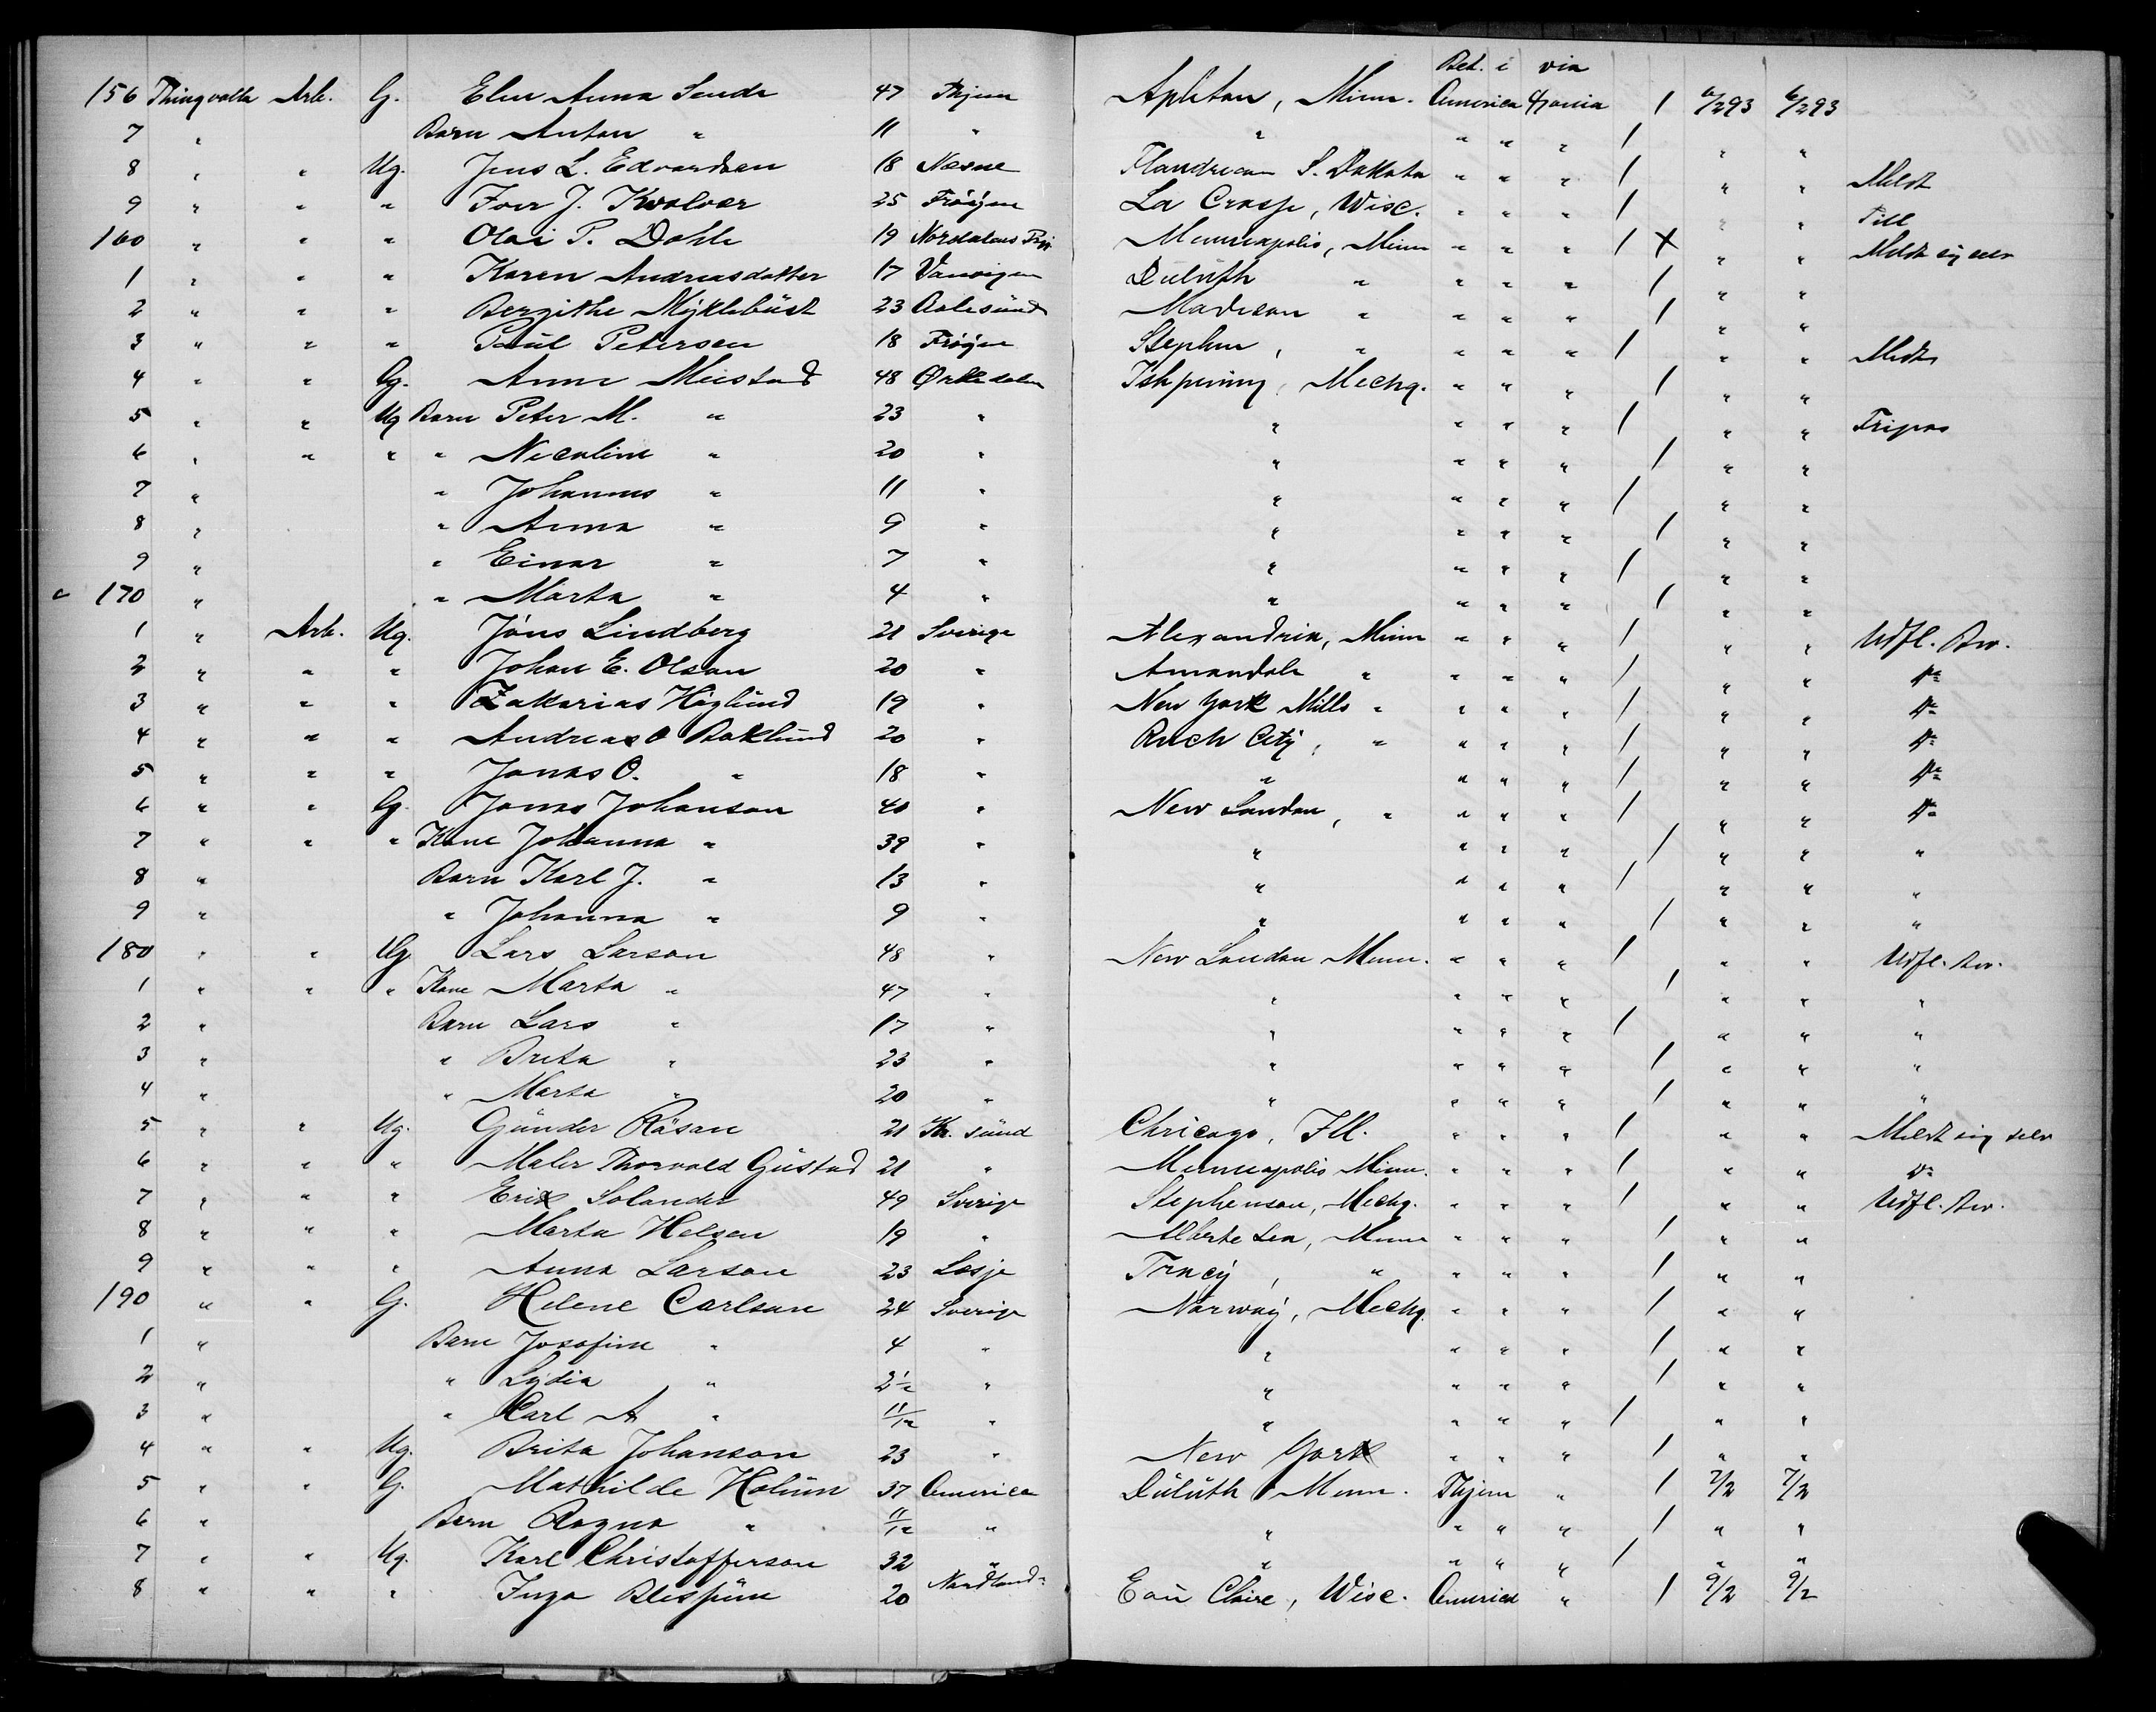 Bet. i via
156 Thingvalla Arb. G. Elen Anna Sende 47 Thjem Apleton, Minn. America Hania 1 6/2 93 6/2 93
7 " Barn Anton " 11 " " " " " 1 " "
8 " " Ug. Jens L. Edvardsen 18 Næsne Flandreau S. Dakota " " " 1 " " Meldt
9 " " " Iver J. Kvalvær 25 Frøyen La Crosse, Wisc. " " " 1 " " Till
160 " " " Olai P. Dahle 19 Nordalens Minneapolis, Minn " " " 1 X " " Meldt sig selv
1 " " " Karen Andreasdatter 17 Duluth " " " " 1 " "
2 " " " Bergithe Myklebust 23 Aalesund Madison " " " " 1 " "
3 " " " Paul Petersen 18 Frøyen Stephen, " " " " 1 " " Meldt
4 " " G. Anne Meistad 48 Ørkedalen Ishpining, Mechg. " " " 1 " "
5 " " Ug Barn Peter M. " 23 " " " " " 1 " " Fripas
6 " " " " Nicoline " 20 " " " " " 1 " "
7 " " Johannes " 11 " " " " " 1 " "
8 " " Anna " 9 " " " " " 1 " "
9 " " Einar " 7 " " " " " 1 " "
170 " " Marta " 4 " " " " " 1 " "
1 " Arb. Ug. Jöns Lindberg 21 Sverige Alexandria, Minn " " " 1 " " Udfl. Bev.
2 " " " Johan E. Olson 20 " Anandale " " " " 1 " " Do
3 " " " Zakarias Höglund 19 " New York Mills " " " " 1 " " Do
4 " " " Andreas O Baklund 20 " Ruch City, " " " " 1 " " Do
5 " " " Jonas O. " 18 " " " " " 1 " " Do
6 " " G. Jonas Johanson 40 " New London, " " " " 1 " " Do
7 " " " Kone Johanna " 39 " " " " " 1 " " "
8 " Barn Karl J. " 13 " " " " " 1 " " "
9 " " Johanna " 9 " " " " " 1 " " "
180 " " Ug Lars Larson 48 " New London Minn. " " " 1 " " Udfl. Bev.
1 " " " Kone Marta " 47 " " " " " 1 " " "
2 " Barn Lars " 17 " " " " " 1 " " "
3 " " Brita " 23 " " " " " 1 " " "
4 " " Marta " 20 " " " " " 1 " " "
5 " " Ug. Gunder Råsan 21 Kr. sund Chicago, Ill. " " " 1 " " Meldt sig selv
6 " " " Maler Thorvald Gustad 21 " Minneapolis Minn. " " " 1 " " Do
7 " " " Erik Solander 49 Sverige Stephenson, Mechg. " " " 1 " " Udfl. Bev.
8 " " " Marta Helsen 19 " Alberte Lea, Minn " " " 1 " "
9 " " " Anna Larson 23 Lesje Tracy, " " " " 1 " "
190 " " G. Helene Carlson 24 Sverige Norway, Mechg. " " " 1 " "
1 " Barn Josofine " 4 " " " " " 1 " "
2 " " Lydia " 2½ " " " " " 1 " "
3 " " Carl A " 11/12 " " " " " 1 " "
4 " " Ug. Brita Johanson 23 " New York " " " 1 " "
5 " " G. Mathilde Holum 37 America Duluth Minn. Thjem " 1 7/2 7/2
6 " Barn Ragna " 11/12 " " " " " 1 " "
7 " " Ug. Karl Christofferson 32 " " " " " 1 " "
8 " " " Inga 20 Nordland Eau Claire, Wisc. America " 1 9/2 9/2